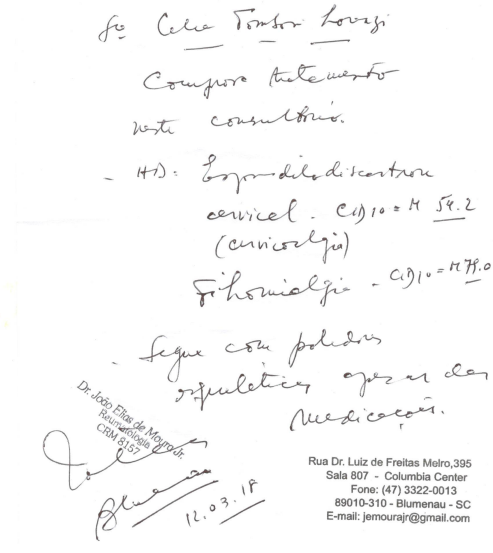 Sª Celia Tomson
Comprova tratamento
neste consultório.
- HD: Espondilodiscoartrose
cervical. CID10 = M 54.2
(cervicalgia)
Fibromialgia - CID10 = M79.0
- Segue com
esqueléticas apesar das
medicações.
Dr. João Elias de Moura Jr.
Reumatologia
CRM 8157
Blumenau
12.03.18
Rua Dr. Luiz de Freitas Melro,395
Sala 807 - Columbia Center
Fone: (47) 3322-0013
89010-310 - Blumenau - SC
E-mail: jemourajr@gmail.com